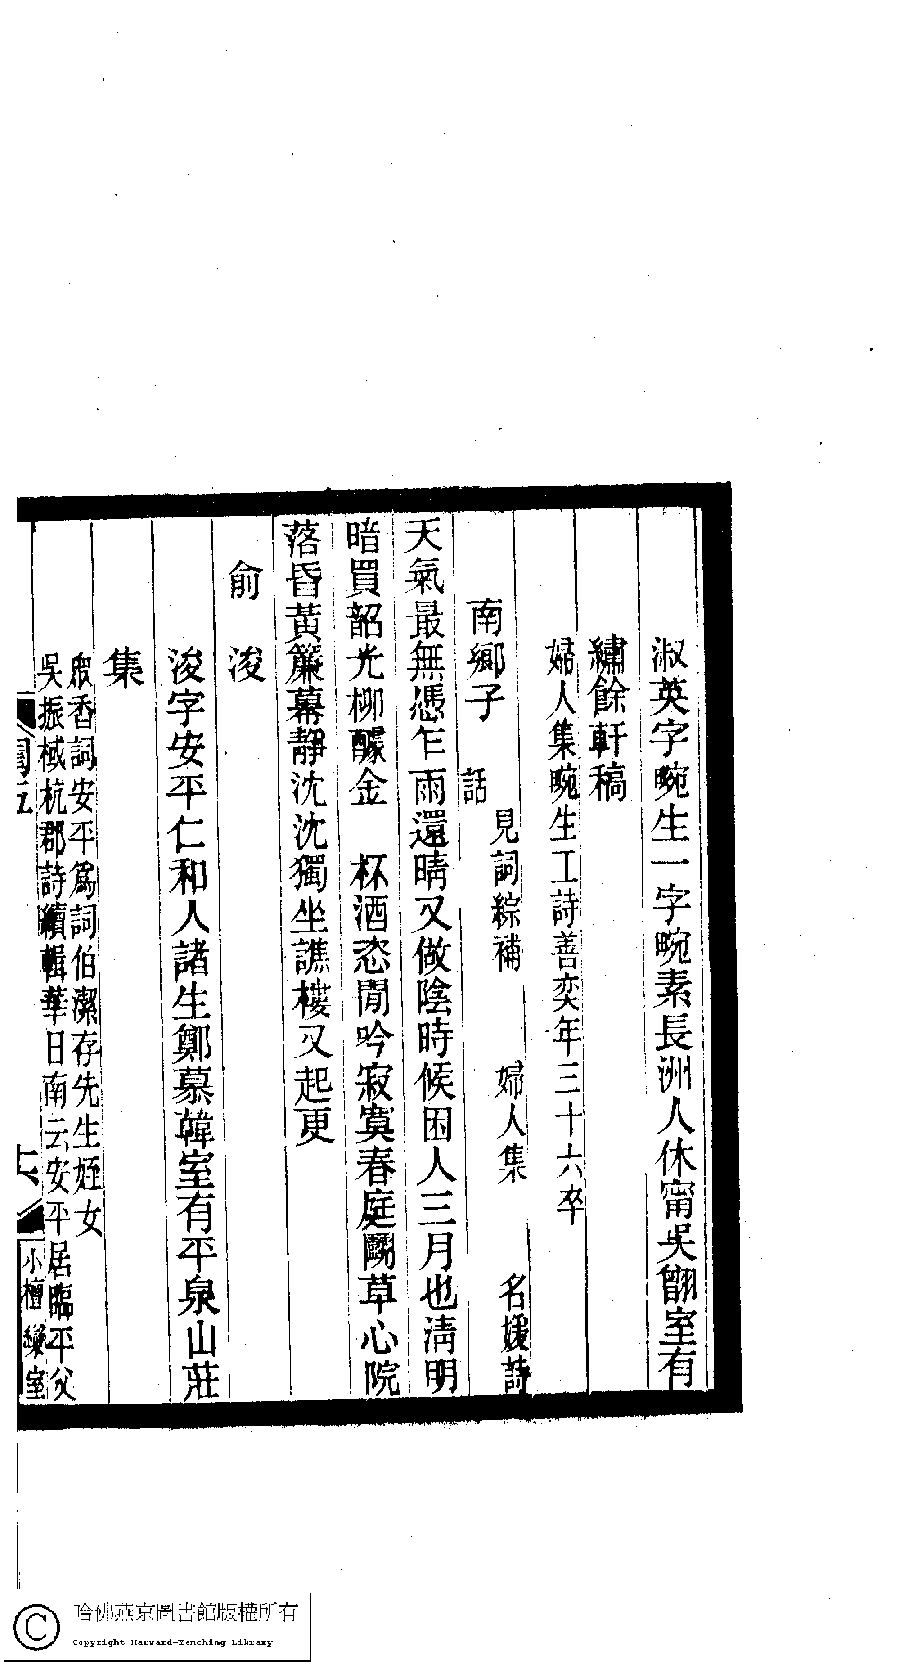 淑英字畹生一字畹素長洲人休甯吳翷室有
繡餘軒稿
婦人集畹生工詩善奕年三十六卒
南鄉子
見詞綜補 婦人集 名媛詩
話
天氣最無憑乍雨還晴又做陰時候困人三月也淸明
暗買韶光柳釀金 杯酒恣閒吟寂寞春庭鬭草心院
落昏黃簾幕靜沈沈獨坐譙樓又起更
俞浚
浚字安平仁和人諸生鄭慕韓室有平泉山莊
集
眾香詞安平爲詞伯潔存先生姪女
吳振棫杭郡詩續輯華日南云安平居臨平父
閨五
十六
小檀欒室
哈佛燕京圖書館版權所有
Copyright Harvard-Yenching Library